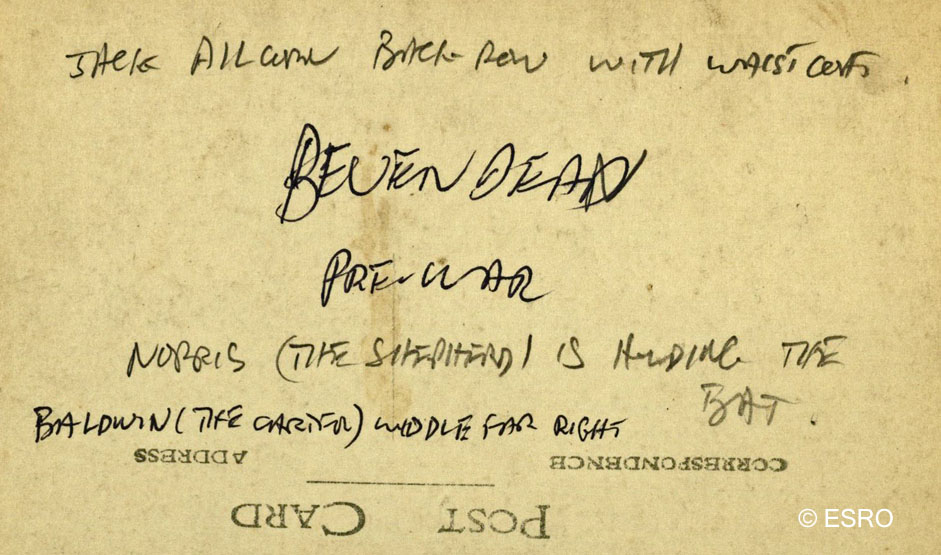 JACK ALLCORN BACK ROW WITH WAISTCOAT.
BEVENDEAN
PRE-WAR
NORRIS (THE SHEPHERD) IS HOLDING THE
BAT.
BALDWIN (THE CARTER) MIDDLE FAR RIGHT
ADDRESS CORRESPONDENCE
POST CARD
© ESRO